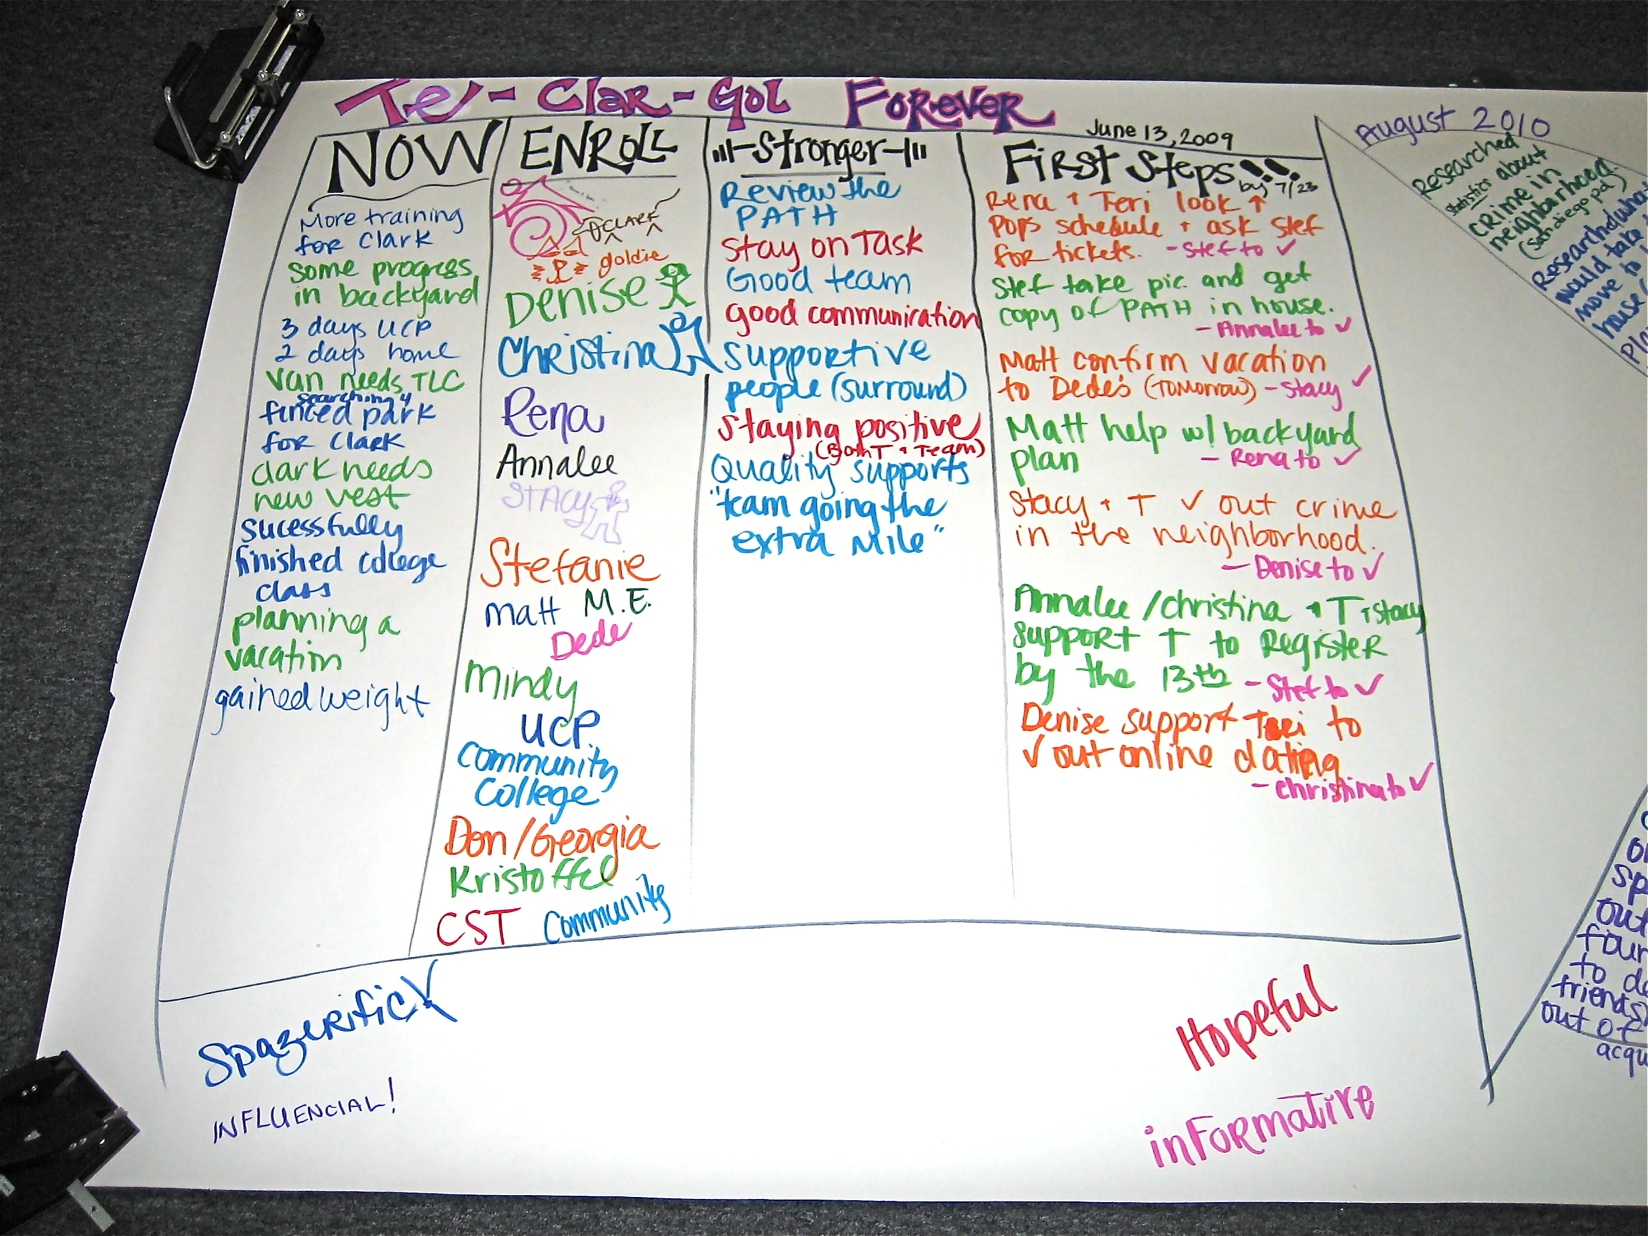 Te - Clar - Gol Forever
June 13, 2009
NOW
More training
for Clark
some progress
in backyard
3 days UCP
2 days home
Van needs TLC
searching 4
fenced park
for Clark
Clark needs
new vest
sucessfully
finished college
class
planning a
vacation
gained weight
ENROLL
CLARK
goldie
Denise
Christina
Rena
Annalee
STACY
Stefanie
Matt M.E.
Dede
Mindy
UCP
Community
College
Don/Georgia
Kristoffel
CST Community
Stronger
Review the
PATH
Stay on Task
Good team
good communication
supportive
people (surround)
Staying positive
(Both T + Team)
Quality supports
"team going the
extra mile"
First Steps!!
by 7/23
Rena + Teri look ↑
Pops schedule + ask Stef
for tickets. - Stef to ✓
Stef take pic. and get
copy of PATH in house.
- Annalee to ✓
Matt confirm vacation
to Dede's (Tomorrow) - Stacy ✓
Matt help w/ backyard
plan - Rena to ✓
Stacy + T ✓ out crime
in the neighborhood.
- Denise to ✓
Annalee/Christina + T + Stacy
support T to Register
by the 13th - Stef to ✓
Denise support Teri to
✓ out online dating
- Christina to ✓
August 2010
Researched
statistics about
crime in
neighborhood
(San diego pd)
Researched what
would take
move to
house
out
four
to
friends
out of
Spazerific
INFLUENCIAL!
Hopeful
informative